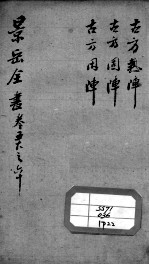 古方熱陣
古方固陣
古方因陣
景岳全書卷五十八之六十
5571
036
1922